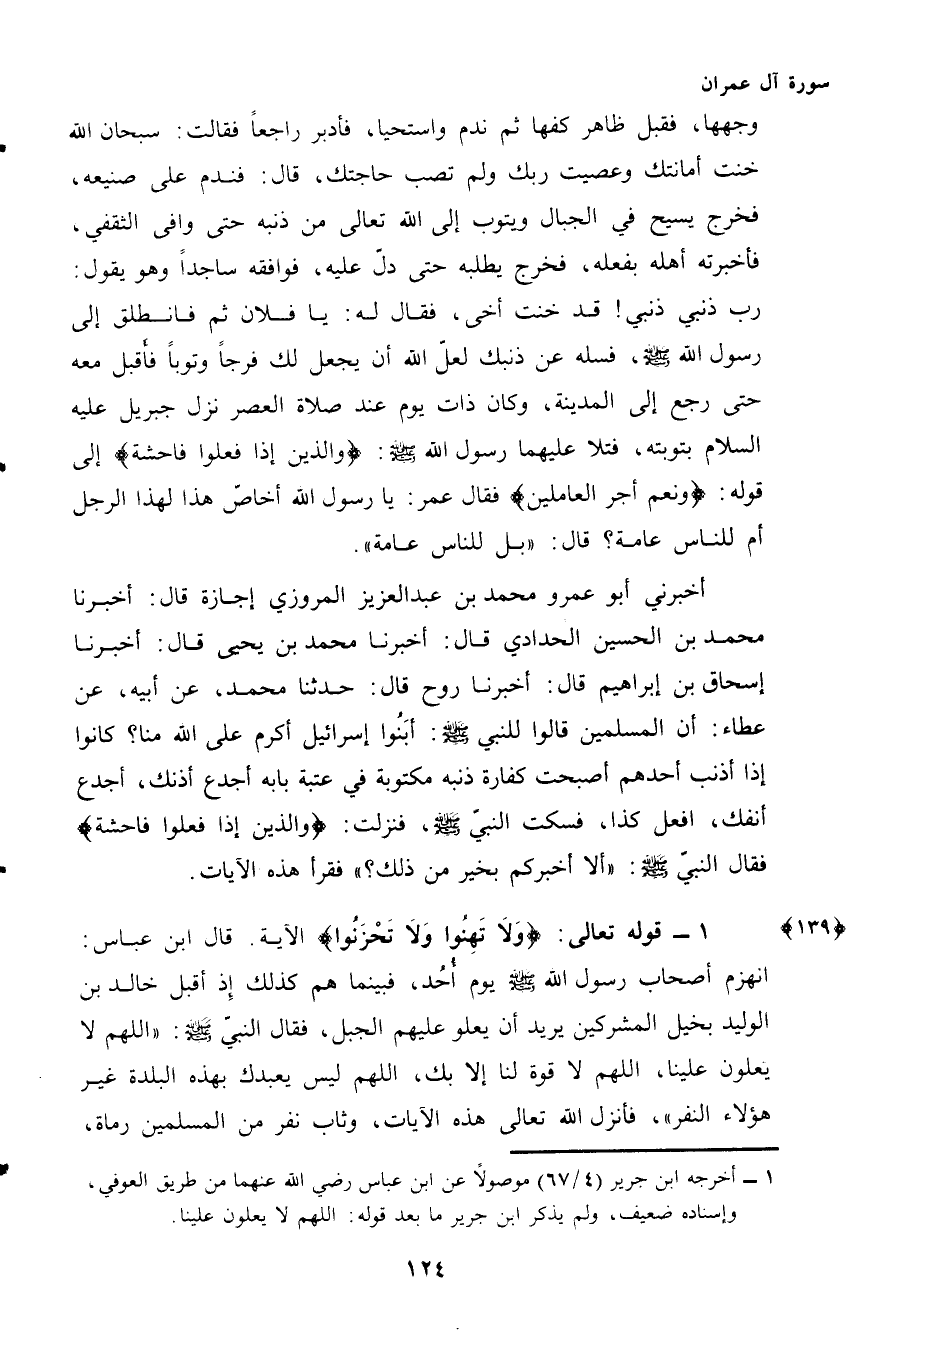 سورة آل عمران
وجهها، فقبل ظاهر كفها ثم ندم واستحيا، فأدبر راجعاً فقالت: سبحان الله
خنت أمانتك وعصيت ربك ولم تصب حاجتك، قال: فندم على صنيعه،
فخرج يسيح في الجبال ويتوب إلى الله تعالى من ذنبه حتى وافى الثقفي،
فأخبرته أهله بفعله، فخرج يطلبه حتى دلّ عليه، فوافقه ساجداً وهو يقول:
رب ذنبي ذنبي! قد خنت أخى، فقال له: يا فلان ثم فانطلق إلى
رسول الله ﷺ، فسله عن ذنبك لعلّ الله أن يجعل لك فرجاً وتوباً فأقبل معه
حتى رجع إلى المدينة، وكان ذات يوم عند صلاة العصر نزل جبريل عليه
السلام بتوبته، فتلا عليهما رسول الله ﷺ: ﴿والذين إذا فعلوا فاحشة﴾ إلى
قوله: ﴿ونعم أجر العاملين﴾ فقال عمر: يا رسول الله أخاصّ هذا لهذا الرجل
أم للناس عامة؟ قال: «بل للناس عامة».
أخبرني أبو عمرو محمد بن عبدالعزيز المروزي إجازة قال: أخبرنا
محمد بن الحسين الحدادي قال: أخبرنا محمد بن يحيى قال: أخبرنا
إسحاق بن إبراهيم قال: أخبرنا روح قال: حدثنا محمد، عن أبيه، عن
عطاء: أن المسلمين قالوا للنبي ﷺ: أبَنُوا إسرائيل أكرم على الله منا؟ كانوا
إذا أذنب أحدهم أصبحت كفارة ذنبه مكتوبة في عتبة بابه أجدع أذنك، أجدع
أنفك، افعل كذا، فسكت النبيّ ﷺ، فنزلت: ﴿والذين إذا فعلوا فاحشة﴾
فقال النبيّ ﷺ: «ألا أخبركم بخير من ذلك؟» فقرأ هذه الآيات.
﴿١٣٩﴾ ١ ــ قوله تعالى: ﴿وَلَا تَهِنُوا وَلَا تَحْزَنُوا﴾ الآية. قال ابن عباس:
انهزم أصحاب رسول الله ﷺ يوم أُحُد، فبينما هم كذلك إذ أقبل خالد بن
الوليد بخيل المشركين يريد أن يعلو عليهم الجبل، فقال النبيّ ﷺ: «اللهم لا
يعلون علينا، اللهم لا قوة لنا إلا بك، اللهم ليس يعبدك بهذه البلدة غير
هؤلاء النفر»، فأنزل الله تعالى هذه الآيات، وثاب نفر من المسلمين رماة،
١ ــ أخرجه ابن جرير (٤/٦٧) موصولاً عن ابن عباس رضي الله عنهما من طريق العوفي،
وإسناده ضعيف، ولم يذكر ابن جرير ما بعد قوله: اللهم لا يعلون علينا.
١٢٤